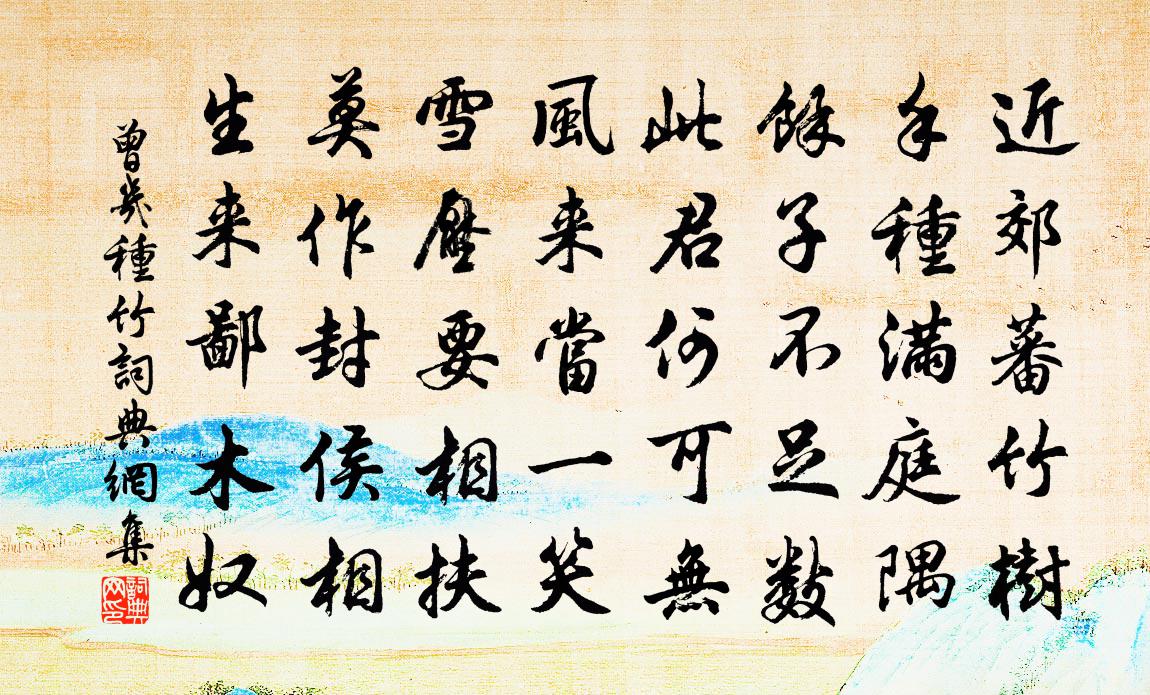 近郊蕃竹樹
手種滿庭隅
餘子不足數
此君何可無
風来當一笑
雪壓要相扶
莫作封侯相
生来鄙木奴
曾幾種竹詞典網集
詞典網印